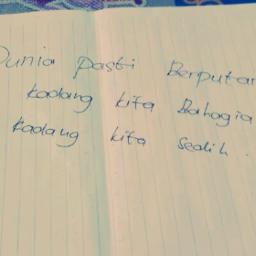 Dunia pasti Berputar
kadang kita Bahagia
kadang kita sedih.